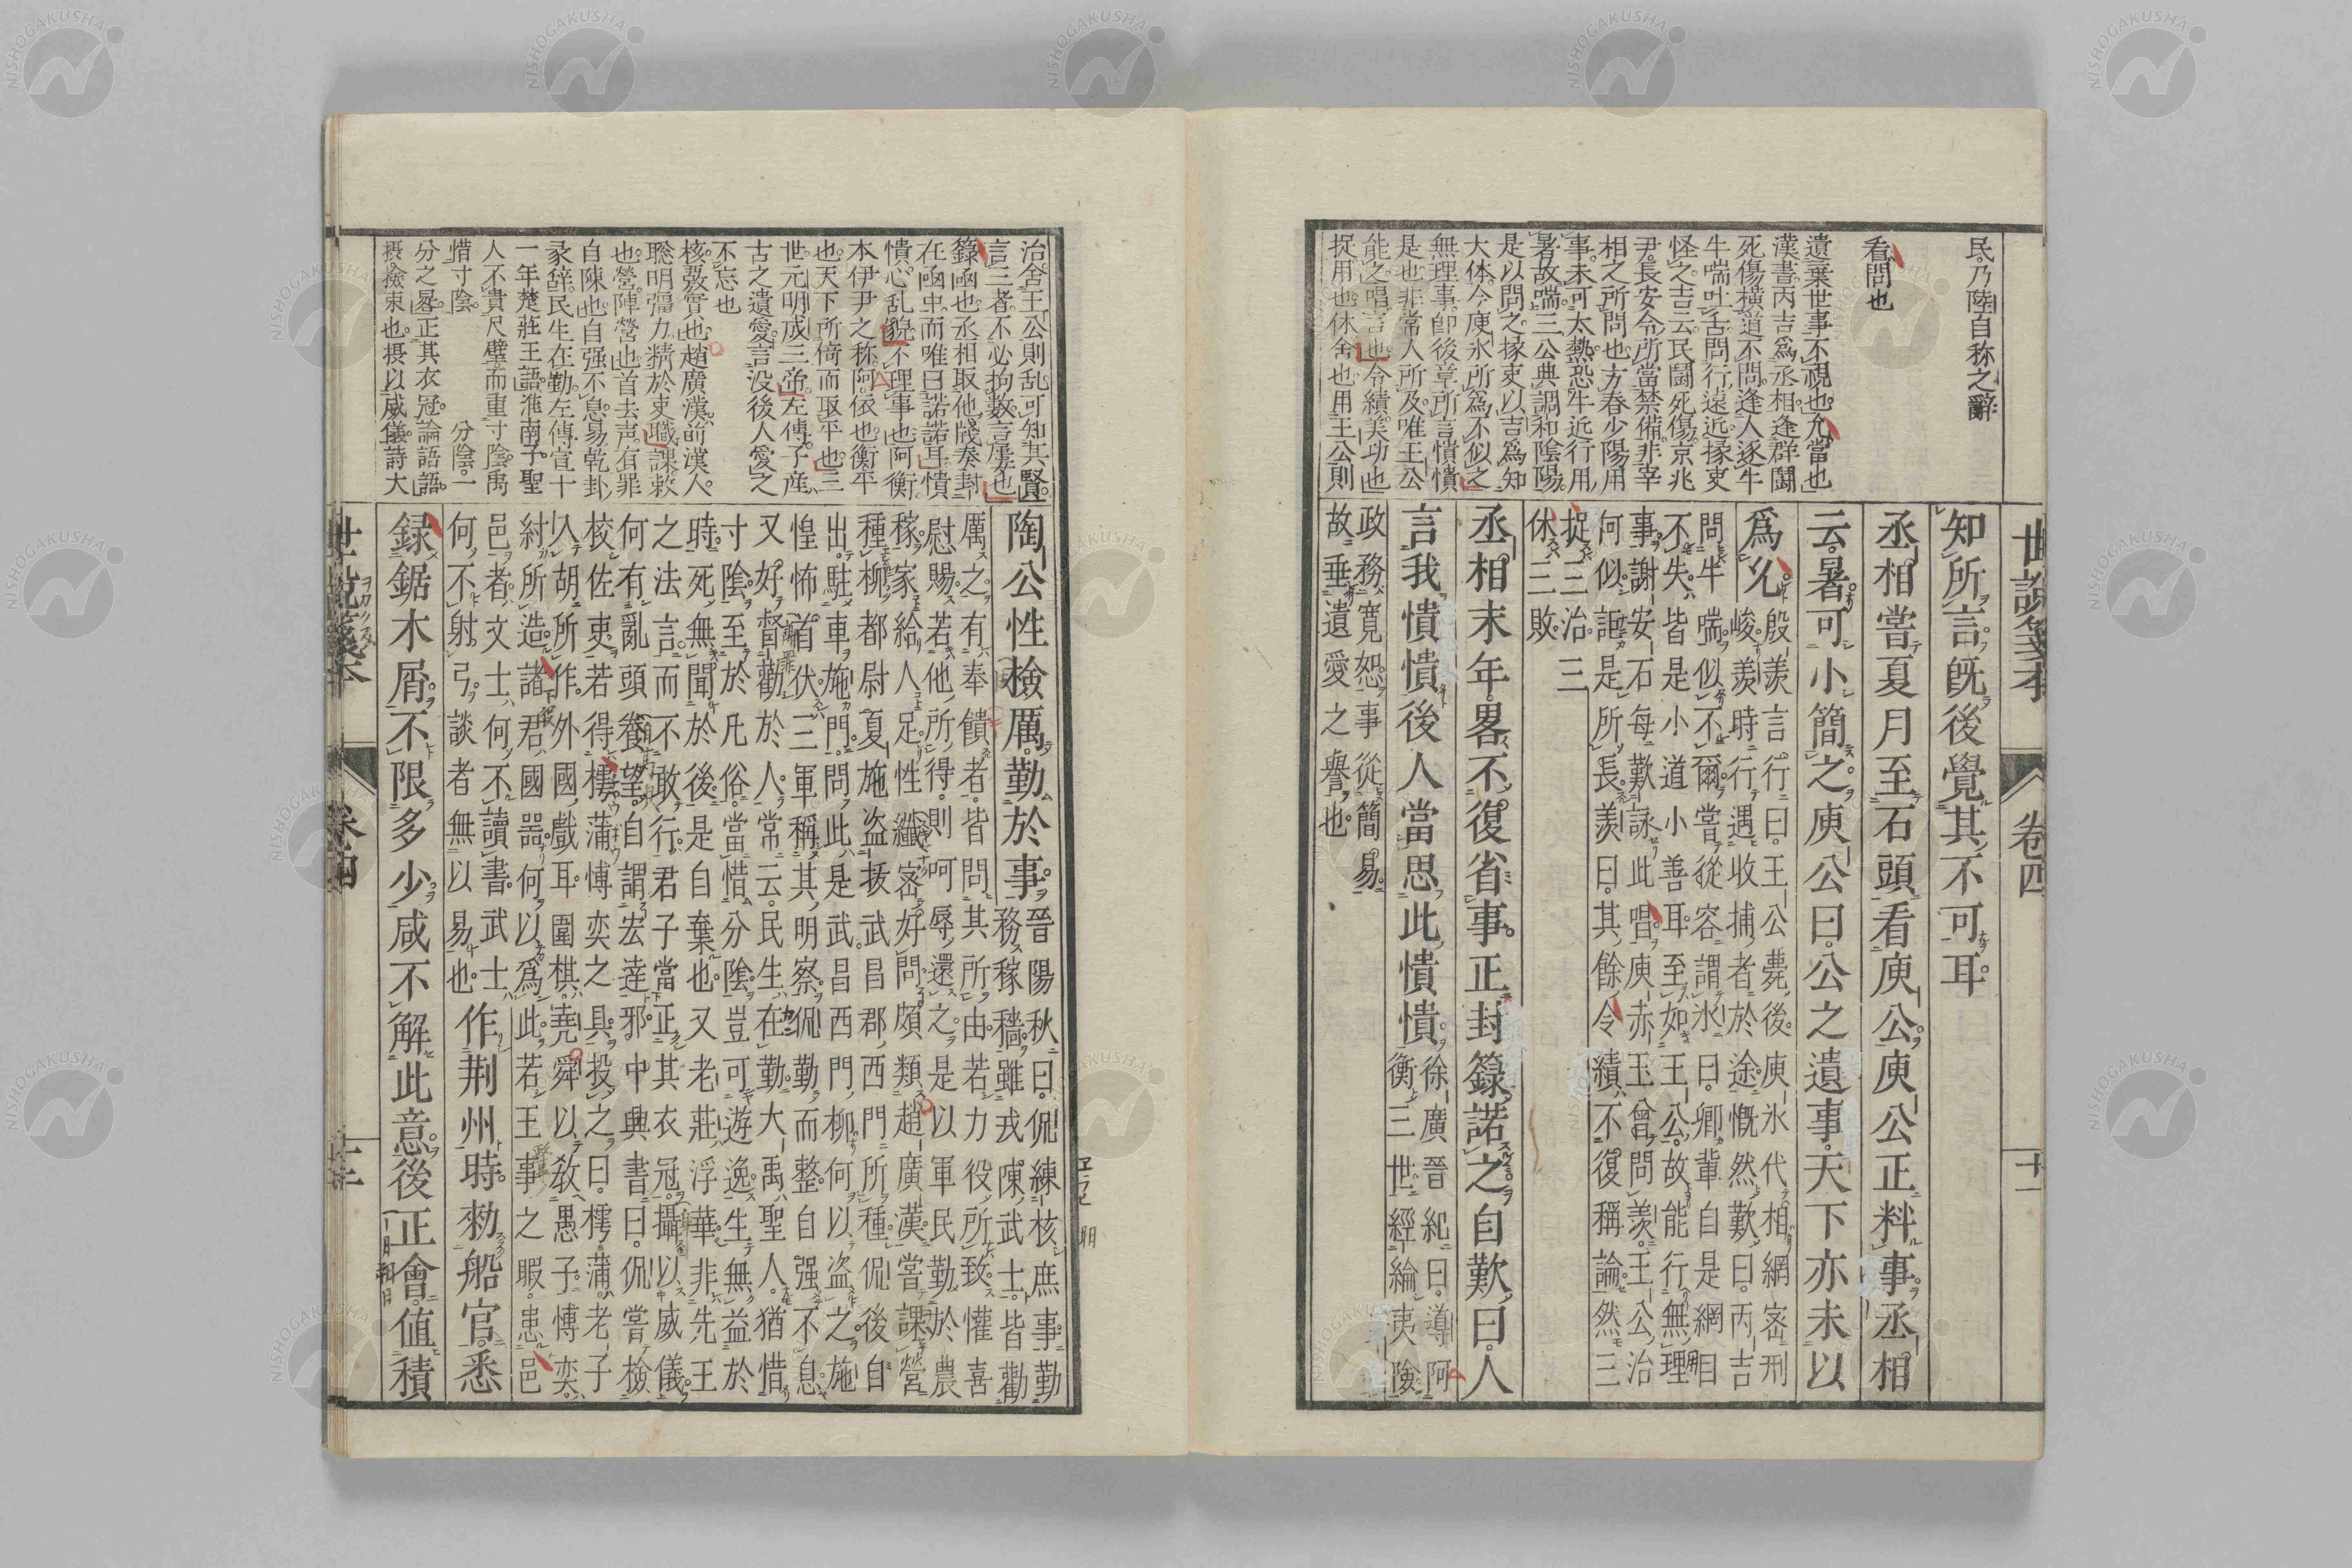 世說箋本 卷四 十一
民乃陸自称之辭
看問也
遺棄世事不視也允當也
漢書丙吉為丞相逢群鬪
死傷橫道不問逢人逐牛
牛喘吐舌問行遠近掾吏
怪之吉云民鬪死傷京兆
尹長安令所當禁備非宰
相之所問也方春少陽用
事未可太熱恐牛近行用
暑故喘三公典調和陰陽
是以問之掾吏以吉為知
大体今庾氷所為不似之
無理事卽後章所言憒憒
是也非常人所及唯王公
能之唱言也令績美功也
捉用也休舍也用王公則
知所言既後覺其不可耳
丞相嘗夏月至石頭看庾公庾公正料事丞相
云暑可小簡之庾公曰公之遺事天下亦未以
為允
殷羨言行曰王公薨後庾氷代相網密刑
峻羨時行遇收捕者於途慨然歎曰丙吉
問牛喘似不爾嘗從容謂氷曰卿輩自是網目
不失皆是小道小善耳至如王公故能行無理
事謝安石每歎詠此唱庾赤玉曾問羨王公治
何似詎是所長羨曰其餘令績不復稱論然三
捉三治三
休三敗
丞相末年畧不復省事正封籙諾之自歎曰人
言我憒憒後人當思此憒憒
徐廣晉紀曰導阿
衡三世經綸夷險
政務寬恕事從簡易
故垂遺愛之譽也
治舍王公則乱可知其賢
言三者不必拘數言屢也
籙凾也丞相取他牋奏封
在凾中而唯曰諾諾耳憒
憒心乱貌不理事也阿衡
本伊尹之称阿依也衡平
也天下所倚而取平也三
世元明成三帝左傳子産
古之遺愛言没後人愛之
不忘也
核覈實也趙廣漢前漢人
聡明彊力精於吏職課敕
也營陣營也首去声有罪
自陳也自强不息易乾卦
彖辞民生在勤左傳宣十
一年楚莊王語淮南子聖
人不貴尺璧而重寸陰禹
惜寸陰 分陰一
分之晷正其衣冠論語語
摂撿束也摂以威儀詩大
陶公性檢厲勤於事
晉陽秋曰侃練核庶事勤
務稼穡雖戎陳武士皆勸
厲之有奉饋者皆問其所由若力役所致懽喜
慰賜若他所得則呵辱還之是以軍民勤於農
稼家給人足性纖密好問頗類趙廣漢嘗課營
種柳都尉夏施盗抜武昌郡西門所種侃後自
出駐車施門問此是武昌西門柳何以盗之施
惶怖首伏三軍稱其明察侃勤而整自强不息
又好督勸於人常云民生在勤大禹聖人猶惜
寸陰至於凡俗當惜分陰豈可遊逸生無益於
時死無聞於後是自棄也又老莊浮華非先王
之法言而不敢行君子當正其衣冠攝以威儀
何有亂頭養望自謂宏達邪中興書曰侃嘗檢
校佐吏若得樗蒲博奕之具投之曰樗蒲老子
入胡所作外國戲耳圍棋堯舜以敎愚子博奕
紂所造諸君國噐何以為此若王事之暇患邑
邑者文士何不讀書武士
何不射弓談者無以易也
作荆州時勑船官悉
録鋸木屑不限多少咸不解此意後正會値積
世說箋本 卷四 十二